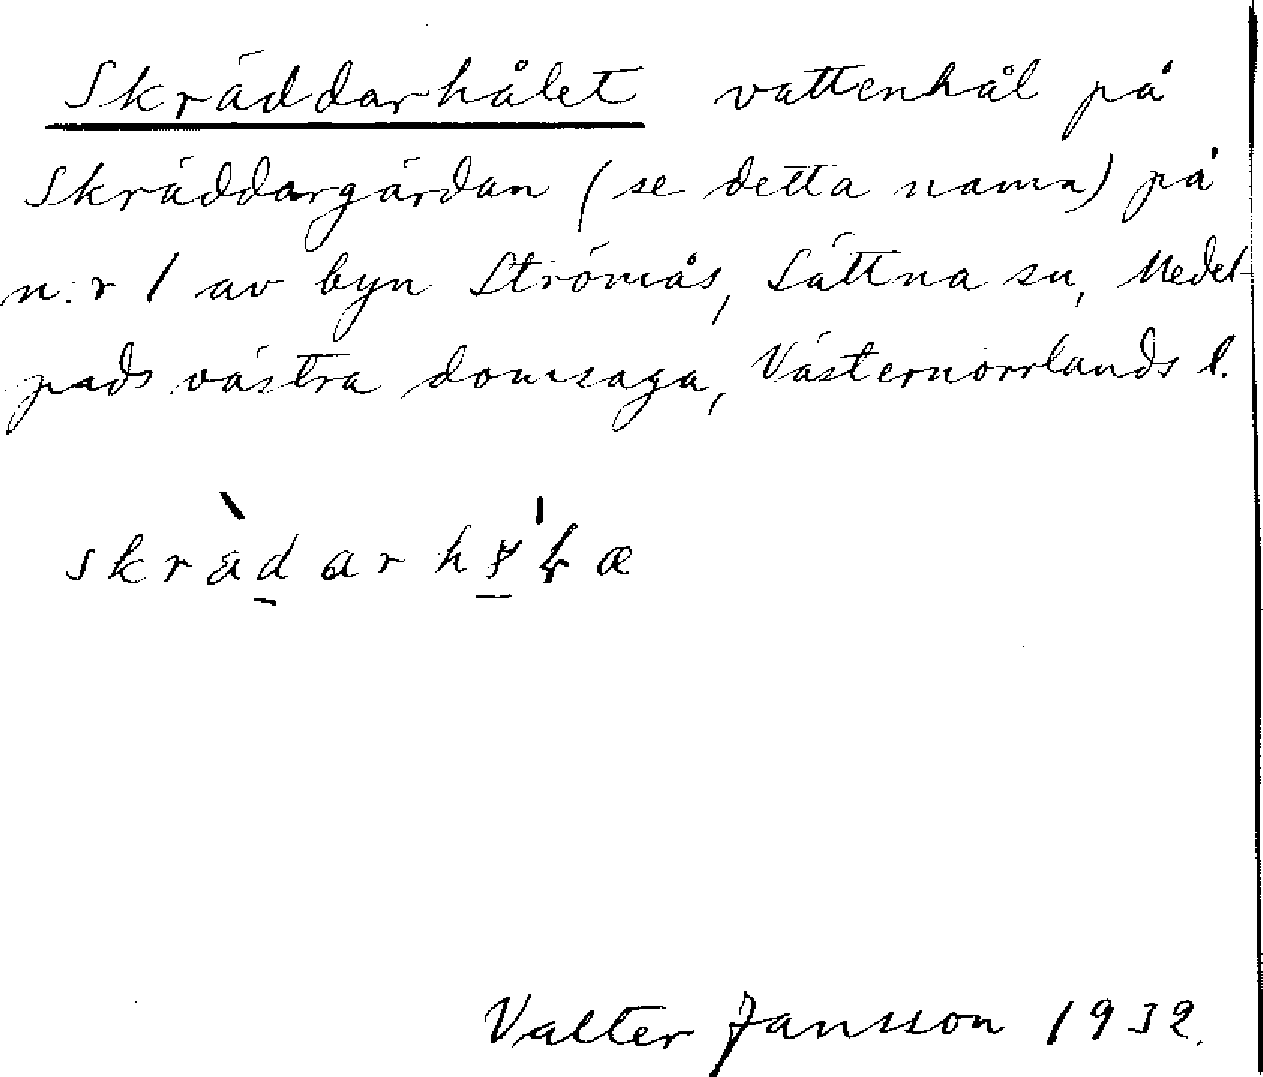 Skräddarhålet vattenhål på
Skräddargärdan (se detta namn) på
n:r 1 av byn Strömås, Sättna sn, Medel-
pads västra domsaga, Västernorrlands l.
Valter Jansson 1932.